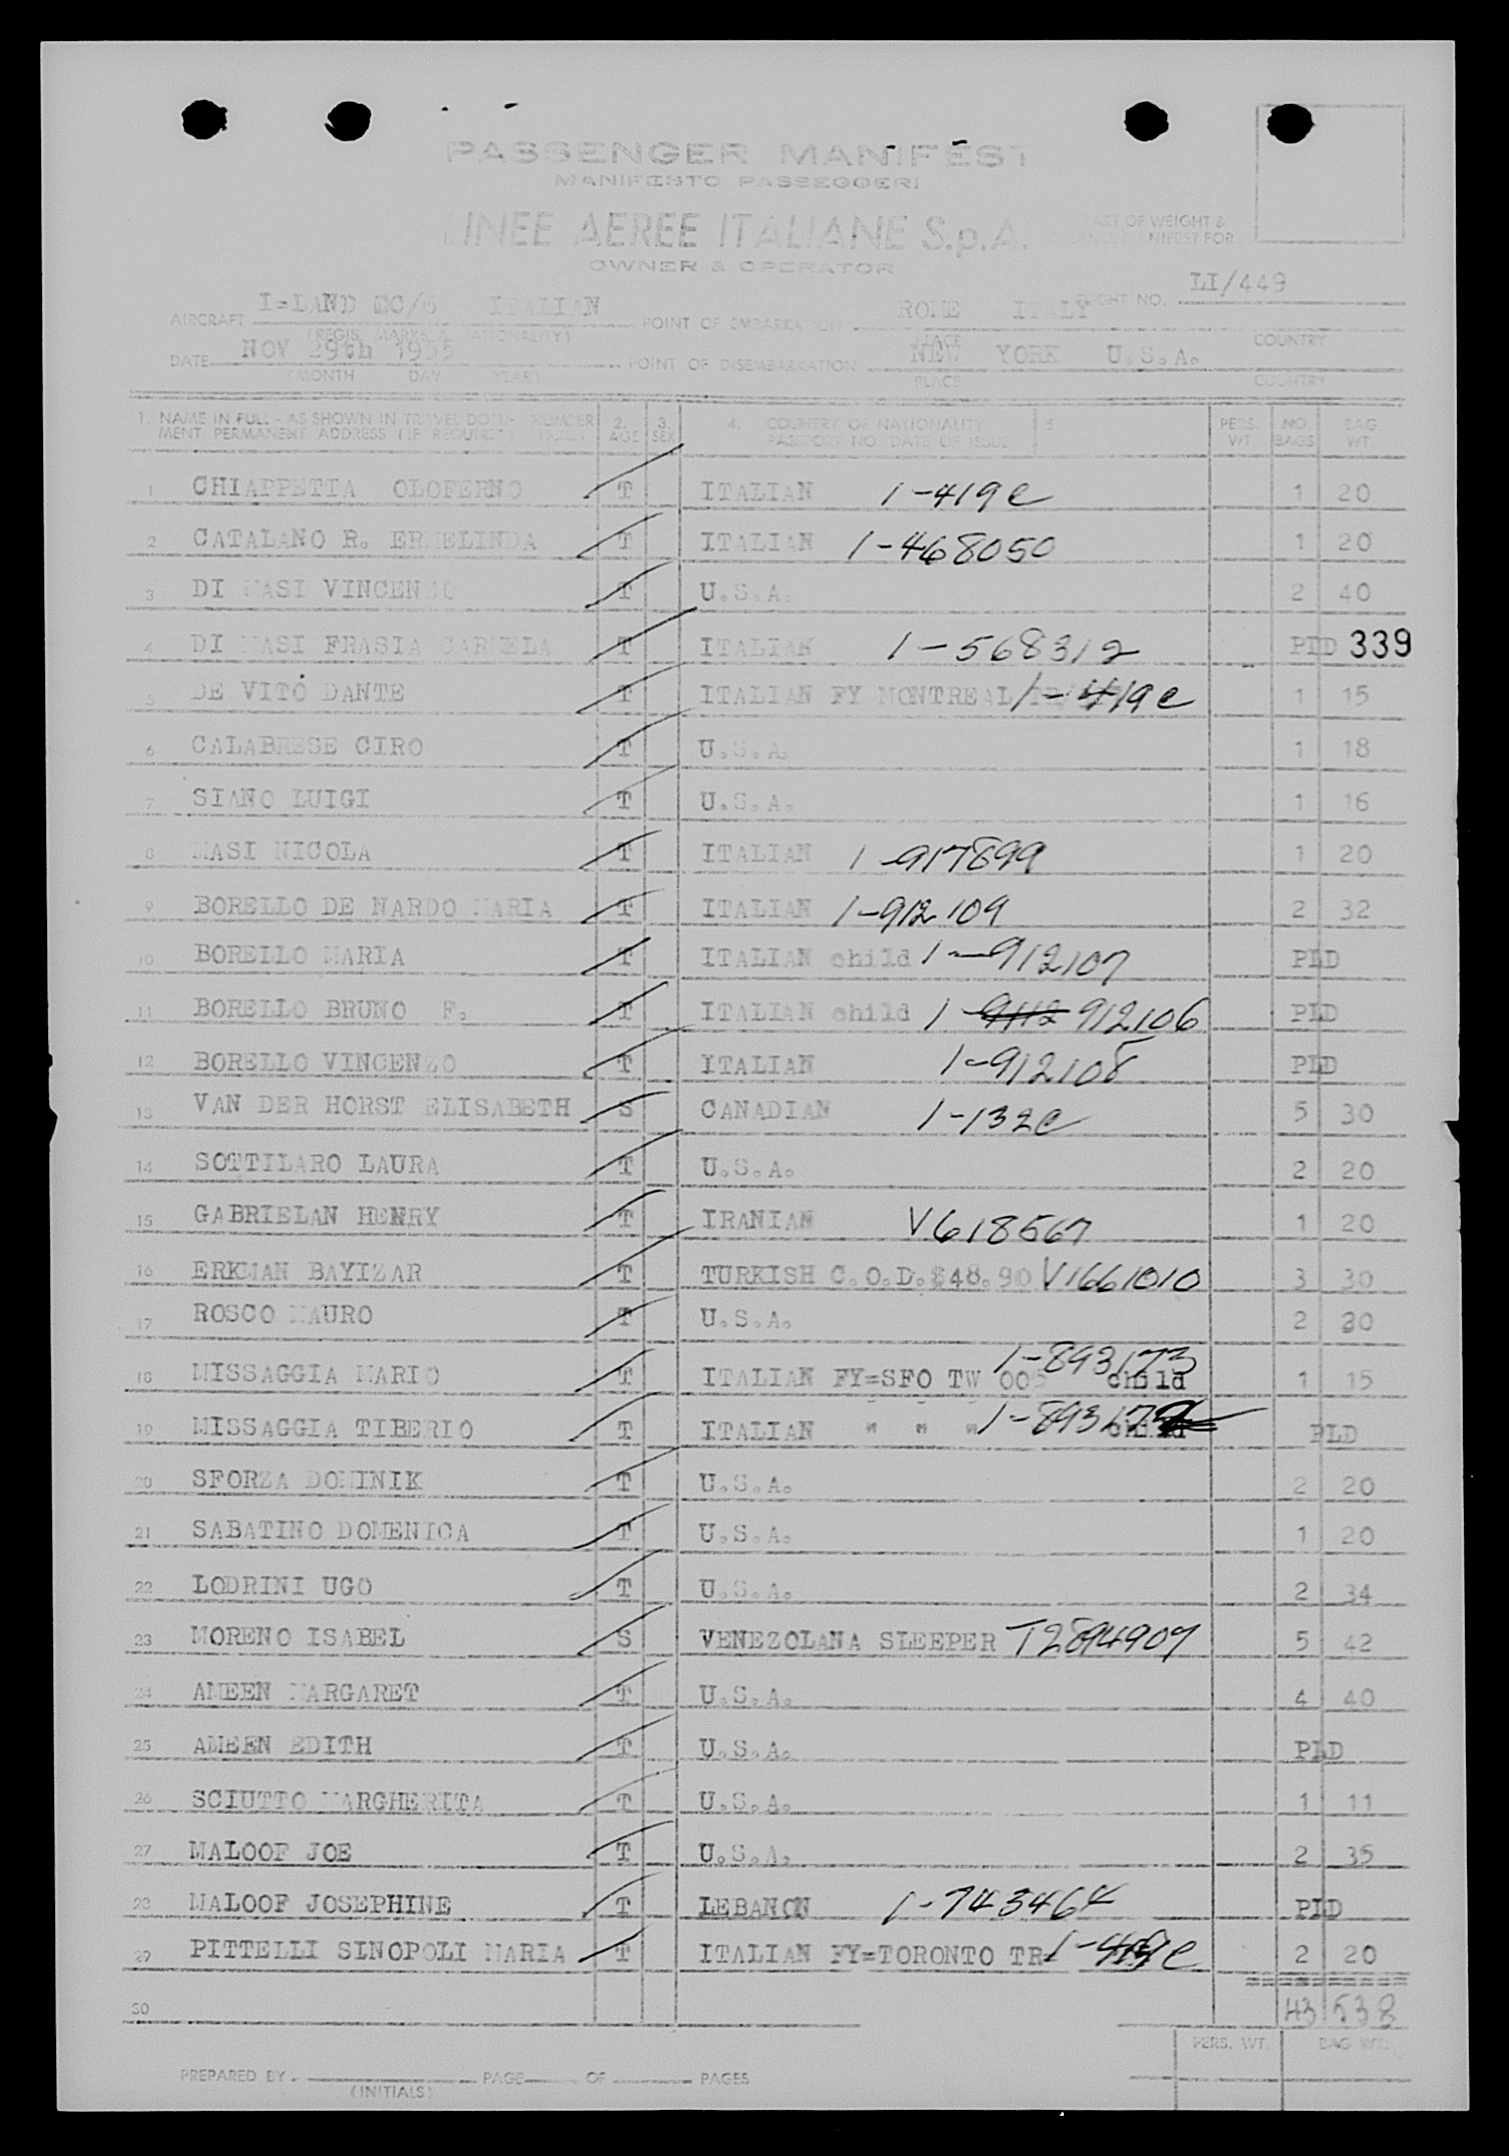 PASSENGER MANIFEST
MANIFESTO PASSEGGERI
LINEE AEREE ITALIANE S.p.A.
OF WEIGHT &
FOR
OWNER & OPERATOR
AIRCRAFT I-LAND DC/6 ITALIAN POINT OF EMBARKATION ROME ITALY FLIGHT NO. LI/449
(REGIS. MARKS & NATIONALITY) PLACE COUNTRY
DATE NOV 29th 1955 POINT OF DISEMBARKATION NEW YORK U.S.A.
(MONTH DAY YEAR) PLACE COUNTRY
1. NAME IN FULL - AS SHOWN IN TRAVEL DOCU- NUMBER 2. 3. 4. COUNTRY OF NATIONALITY 5 PERS. NO. BAG
MENT PERMANENT ADDRESS (IF REQUIRED) AGE SEX PASSPORT NO. DATE OF ISSUE WT. BAGS WT.
1 CHIAPPETTA OLOFERNO T ITALIAN 1-419e 1 20
2 CATALANO R. ERMELINDA T ITALIAN 1-468050 1 20
3 DI MASI VINCENZO T U.S.A. 2 40
4 DI MASI FRASIA CARMELA T ITALIAN 1-568312 PLD 339
5 DE VITO DANTE T ITALIAN FY MONTREAL 1-419e 1 15
6 CALABRESE CIRO T U.S.A. 1 18
7 SIANO LUIGI T U.S.A. 1 16
8 MASI NICOLA T ITALIAN 1-917899 1 20
9 BORELLO DE NARDO MARIA T ITALIAN 1-912109 2 32
10 BORELLO MARIA T ITALIAN child 1-912107 PLD
11 BORELLO BRUNO F. T ITALIAN child 1-9112 912106 PLD
12 BORELLO VINCENZO T ITALIAN 1-912108 PLD
13 VAN DER HORST ELISABETH S CANADIAN 1-132e 5 30
14 SOTTILARO LAURA T U.S.A. 2 20
15 GABRIELAN HENRY T IRANIAN V618567 1 20
16 ERKMAN BAYIZAR T TURKISH C.O.D.$48.90 V1661010 3 30
17 ROSCO MAURO T U.S.A. 2 30
18 MISSAGGIA MARIO T ITALIAN FY=SFO TW 005 1-893173 child 1 15
19 MISSAGGIA TIBERIO T ITALIAN " " " child PLD
20 SFORZA DOMINIK T U.S.A. 2 20
21 SABATINO DOMENICA T U.S.A. 1 20
22 LODRINI UGO T U.S.A. 2 34
23 MORENO ISABEL S VENEZOLANA SLEEPER T2894907 5 42
24 AMEEN MARGARET T U.S.A. 4 40
25 AMEEN EDITH T U.S.A. PLD
26 SCIUTTO MARGHERITA T U.S.A. 1 11
27 MALOOF JOE T U.S.A. 2 35
28 MALOOF JOSEPHINE T LEBANON 1-743464 PLD
29 PITTELLI SINOPOLI MARIA T ITALIAN FY=TORONTO TR 1-419e 2 20
30 43 538
PERS. WT. BAG WT.
PREPARED BY PAGE OF PAGES
(INITIALS)